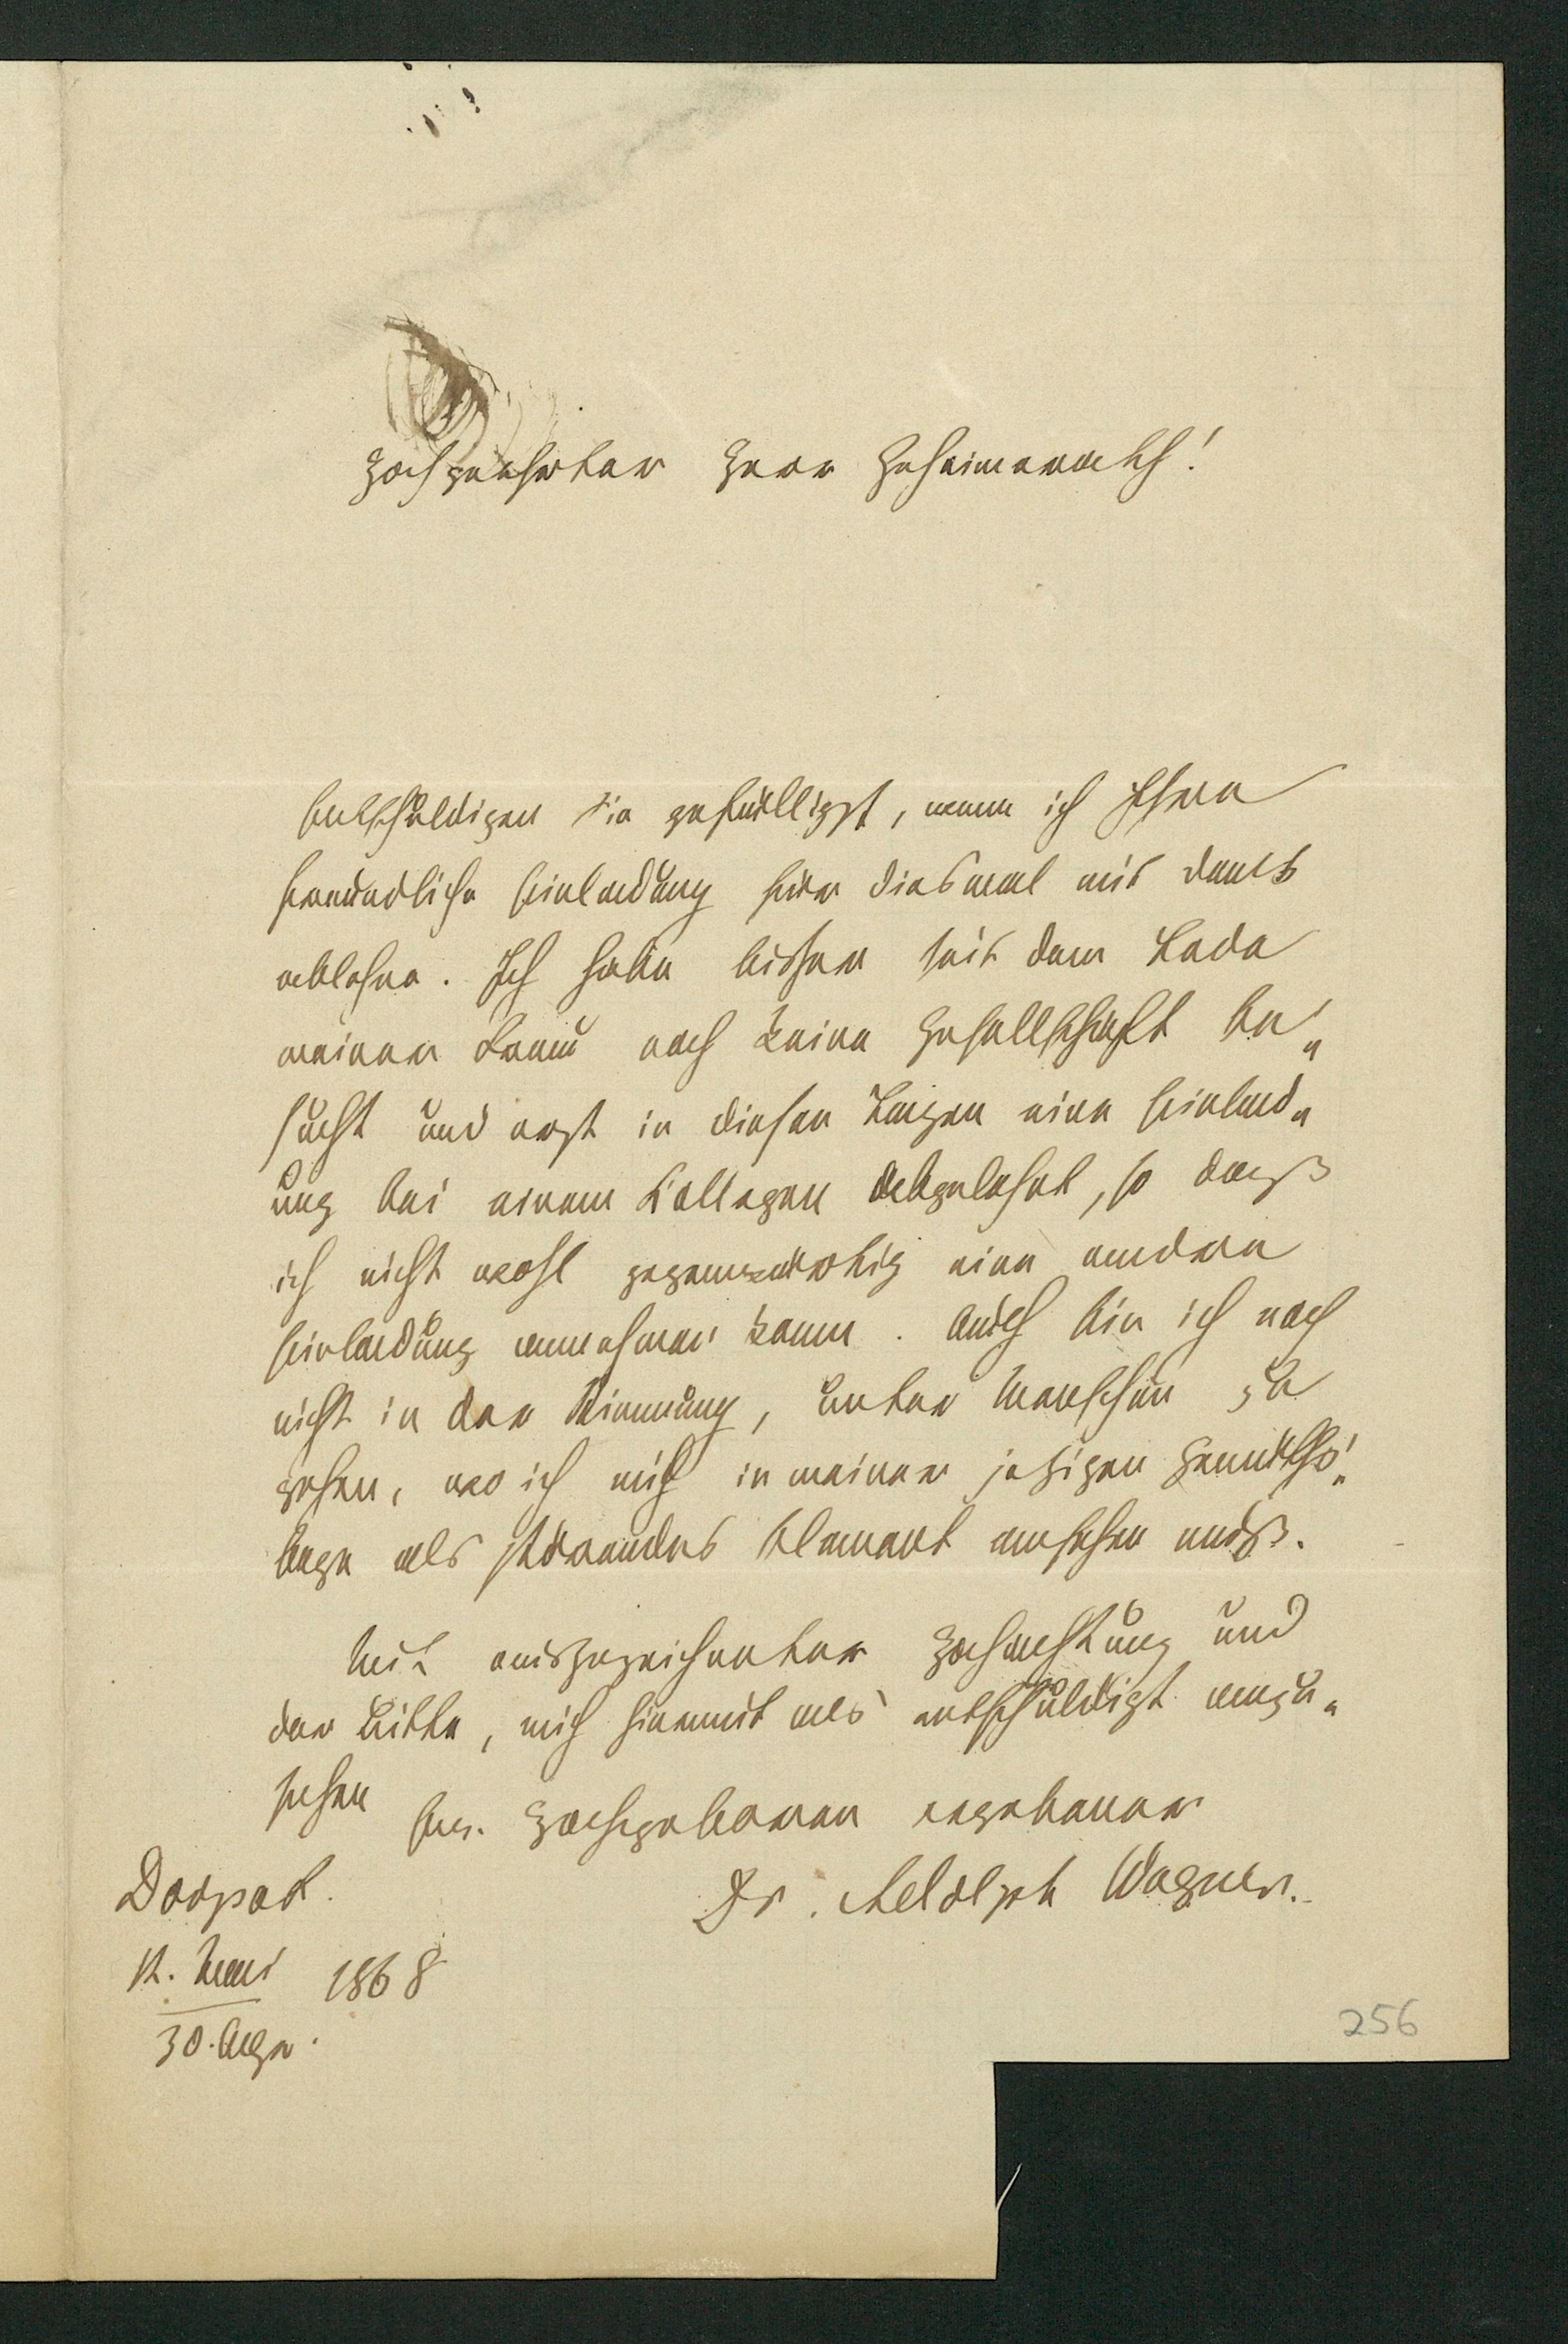 Hochgeehrter Herr Geheimerath!
Entschuldigen Sie gefälligst, wenn ich Ihre
freundliche Einladung für diesmal mit Dank
ablehne. Ich habe bisher seit dem Tode
meiner Frau noch keine Gesellschaft be„
sucht und erst in diesen Tagen eine Einlad„
ung bei einem Collegen abgelehnt, so daß
ich nicht wohl gegenwärtig eine andere
Einladung annehmen kann. Auch bin ich noch
nicht in der Stimmung, unter Menschen zu
gehen, wo ich mich in meiner jetzigen Gemüths„
lage als störendes Element ansehen muß.
Mit ausgezeichneter Hochachtung und
der Bitte, mich hiermit als entschuldigt anzu„
sehen
Ew. Hochgeboren ergebener
Dorpat.
Dr. Adolph Wagner.
12. Mai 1868
30. Apr.
256